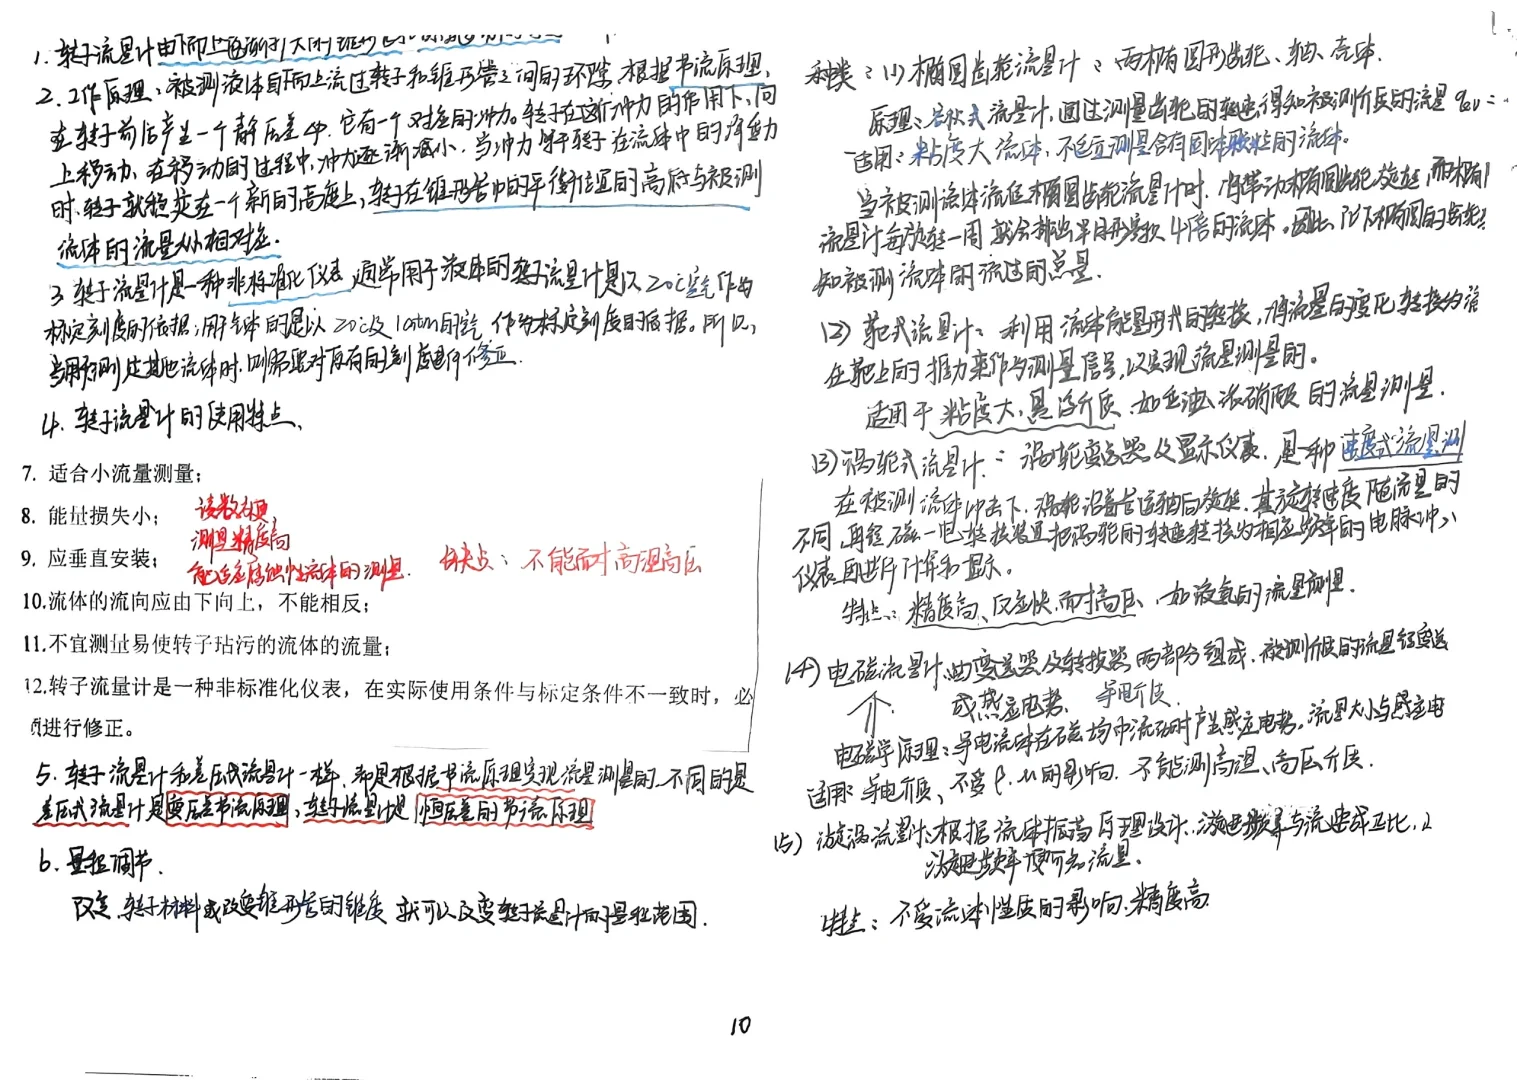 1. 转子流量计由下而上逐渐扩大的锥形
2. 工作原理：被测液体自下而上流过转子和锥形管之间的环隙，根据节流原理，
在转子前后产生一个静压差Δp，它有一个对应的冲力。转子在这个冲力的作用下，向
上移动，在移动的过程中，冲力逐渐减小，当冲力等于转子在流体中的净重力
时，转子就稳定在一个新的高度上，转子在锥形管中的平衡位置的高低与被测
流体的流量大小相对应．
3 转子流量计是一种非标准化仪表，通常用于液体的转子流量计是以20℃ 作为
标定刻度的依据；用于气体的是以20℃及1atm的空气作为标定刻度的依据。所以，
当用于测定其他流体时，则需要对原有的刻度进行修正．
4. 转子流量计的使用特点、
7. 适合小流量测量；
8. 能量损失小；
读数方便，
测量精度高
9. 应垂直安装；
能适应腐蚀性流体的测量．
缺点：不能耐高温高压
10.流体的流向应由下向上，不能相反；
11.不宜测量易使转子玷污的流体的流量；
12.转子流量计是一种非标准化仪表，在实际使用条件与标定条件不一致时，必
须进行修正。
5. 转子流量计和差压式流量计一样，都是根据节流原理实现流量测量的，不同的是
差压式流量计是变压差节流原理，转子流量计是恒压差的节流原理
6. 量程调节．
改变转子材料或改变锥形管的锥度 就可以改变转子流量计的量程范围．
10
种类：(1) 椭圆齿轮流量计：两椭圆形齿轮、轴、壳体．
原理：容积式流量计，通过测量齿轮的转速，得知被测介质的流量 =
适用：粘度大流体，不适宜测量含有固体颗粒的流体。
当被测流体流经椭圆齿轮流量计时，将带动椭圆齿轮旋转，而椭圆
流量计每旋转一周 就会排出半月形容积4倍的流体。因此 椭圆的齿轮
知被测流体的流过的总量．
(2) 靶式流量计：利用流体能量形式的转换，将流量的变化转换为流
在靶上的推力来作为测量信号，以实现流量测量的。
适用于粘度大、悬浮介质，如重油、浓硝酸的流量测量．
(3) 涡轮式流量计：涡轮变送器及显示仪表，是一种速度式流量测
在被测流体冲击下，涡轮沿着管道轴向旋转，其旋转速度随流量的
不同，再经磁—电转换装置把涡轮的转速转换为相应频率的电脉冲，
仪表再进行计算和显示。
特点：精度高、反应快、耐高压，如液氢的流量测量．
(4) 电磁流量计，由变送器及转换器两部分组成，被测介质的流量经变送
或感应电势．导电介质．
电磁学原理：导电流体在磁场中流动时产生感应电势，流量大小与感应电
适用：导电介质、不受ρ、μ的影响，不能测高温、高压介质．
(5) 漩涡流量计：根据流体振荡原理设计，漩涡频率与流速成正比，
漩涡频率便可知流量．
特点：不受流体性质的影响，精度高